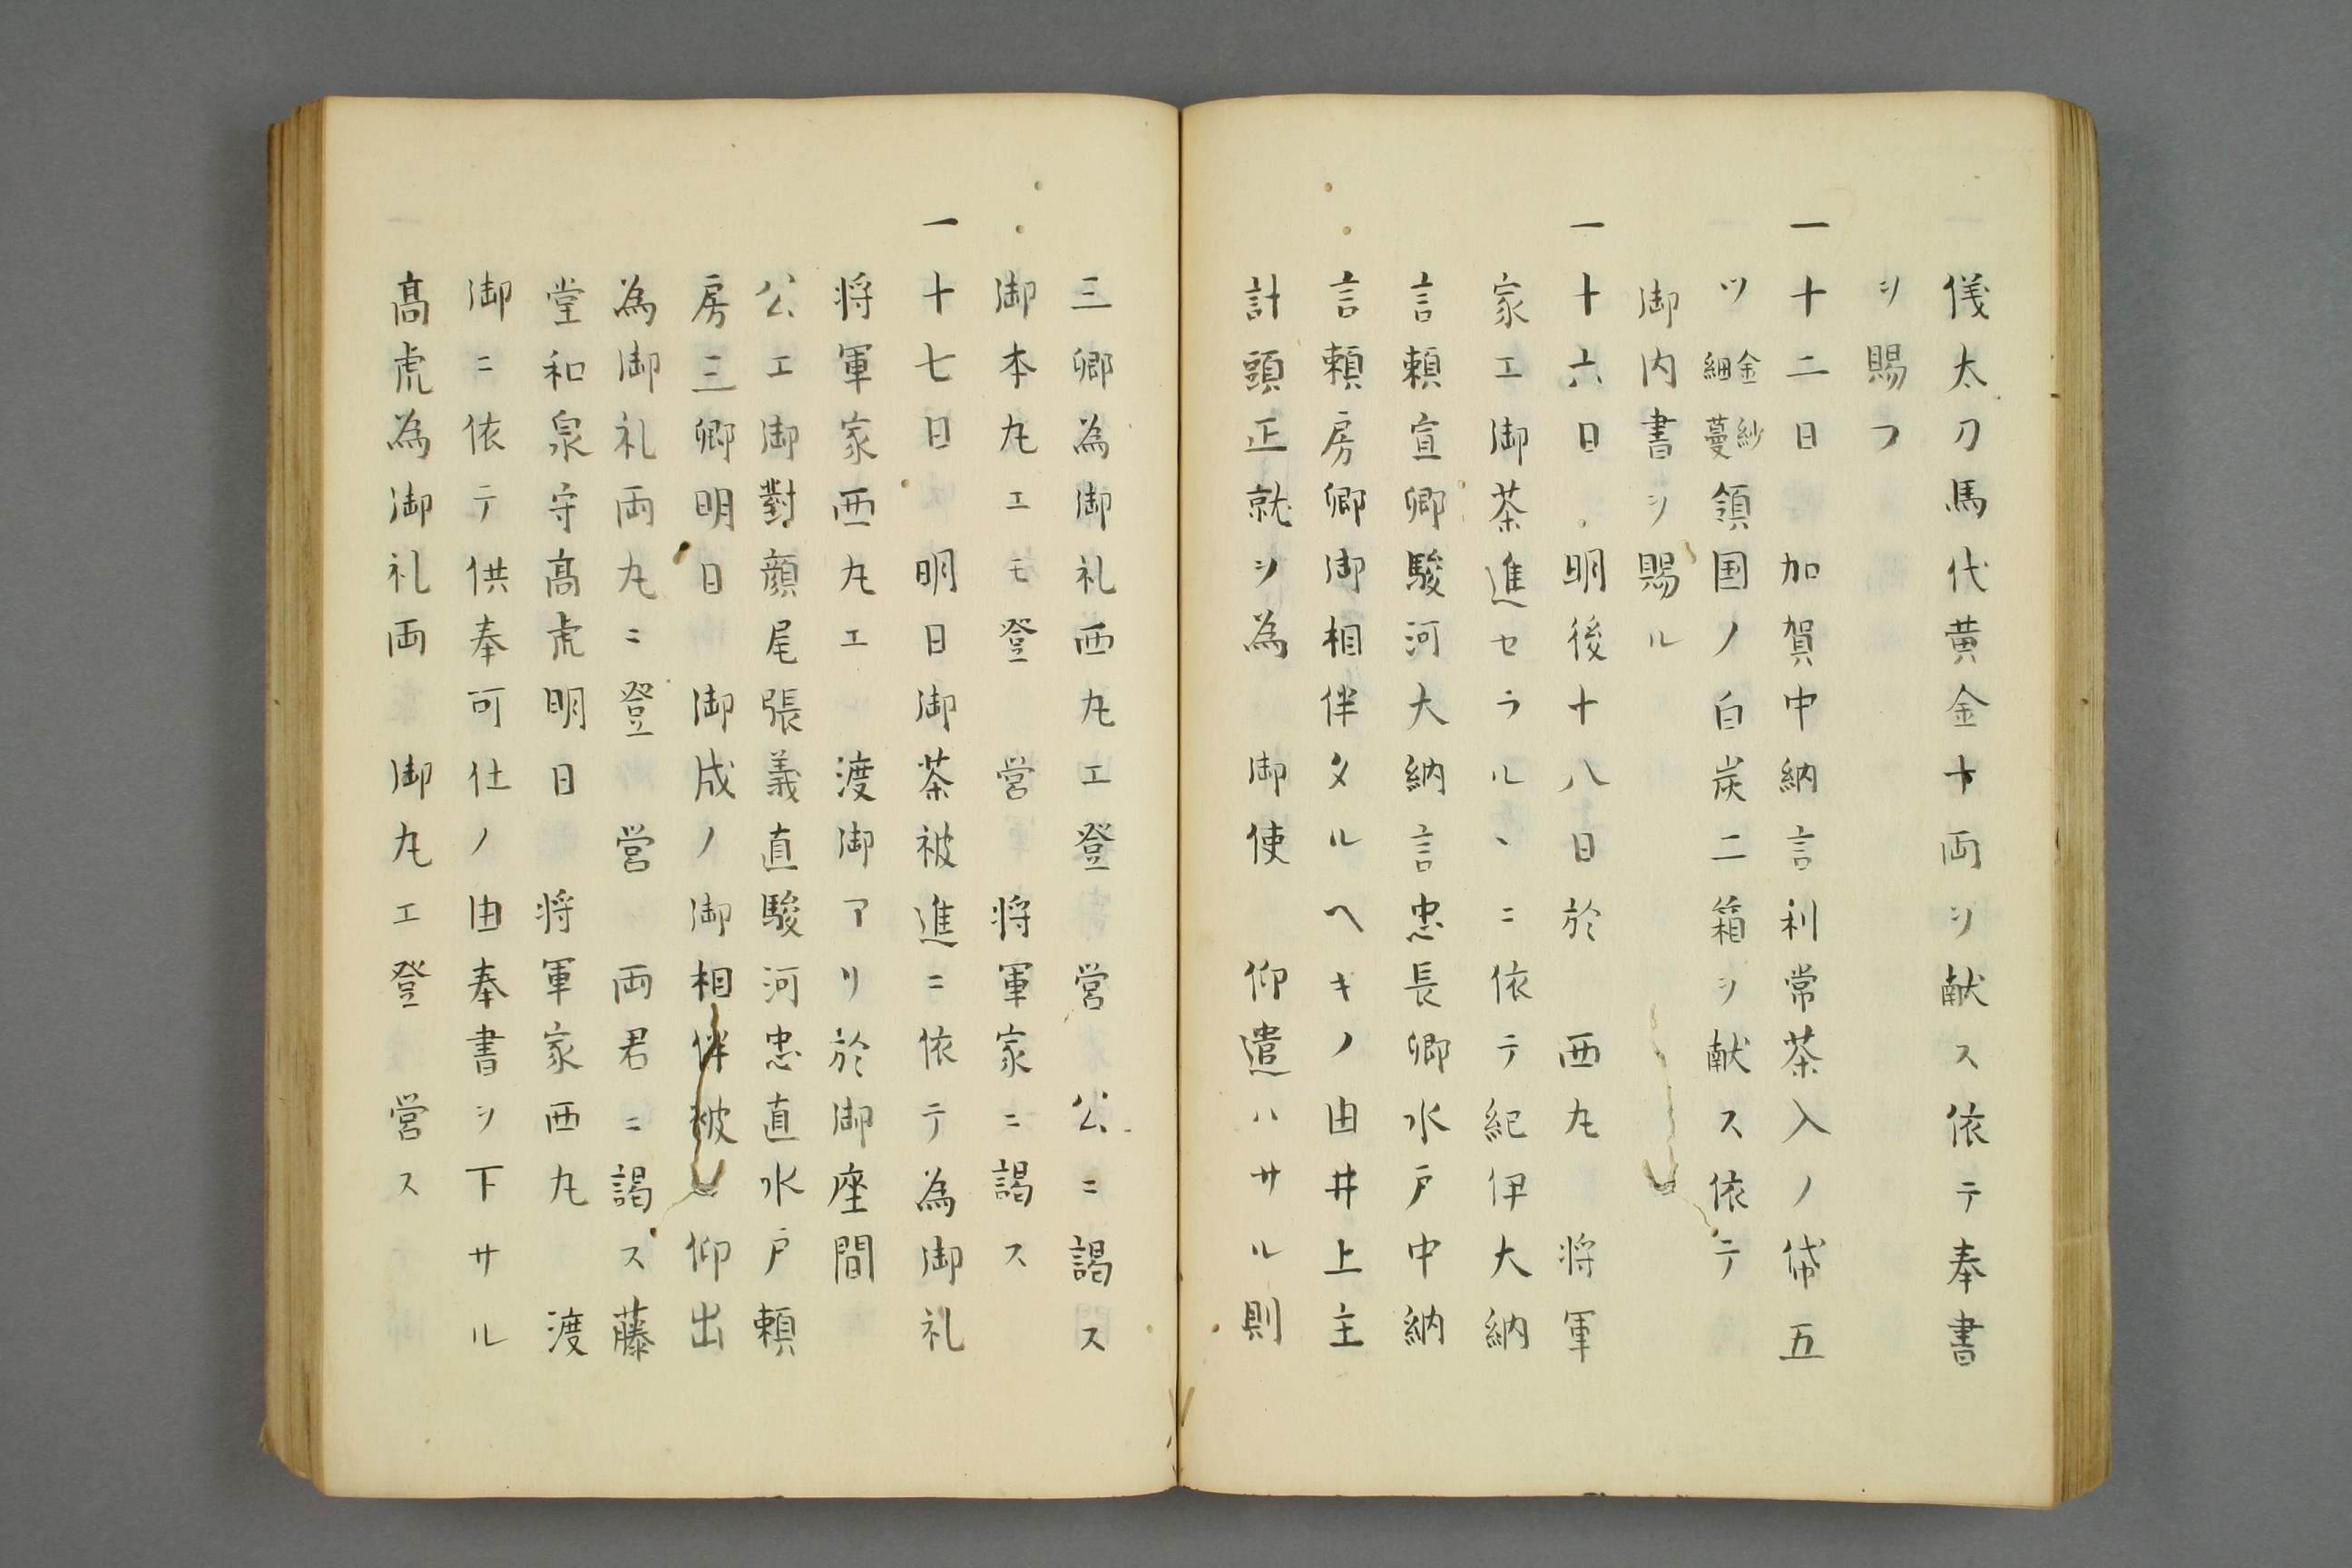 儀太刀馬代黄金十両ヲ献ス依テ奉書
ヲ賜フ
一十二日　加賀中納言利常茶入ノ袋五
ツ金紗細蔓領国ノ白炭二箱ヲ献ス依テ
御内書ヲ賜ル
一十六日　明後十八日於　西丸　将軍
家エ御茶進セラルヽニ依テ紀伊大納
言頼宣卿駿河大納言忠長卿水戸中納
言頼房卿御相伴タルヘキノ由井上主
計頭正就ヲ為　御使　仰遣ハサル則
三卿為御礼西丸エ登　営　公ニ謁ス
御本丸エモ登　営　将軍家ニ謁ス
一十七日　明日御茶被進ニ依テ為御礼
将軍家西丸エ　渡御アリ於御座間
公エ御對顔尾張義直駿河忠直水戸頼
房三卿明日　御成ノ御相伴被　仰出
為御礼両丸ニ登　営　両君ニ謁ス藤
堂和泉守髙虎明日　将軍家西丸　渡
御ニ依テ供奉可仕ノ由奉書ヲ下サル
髙虎為御礼両　御丸エ登　営ス